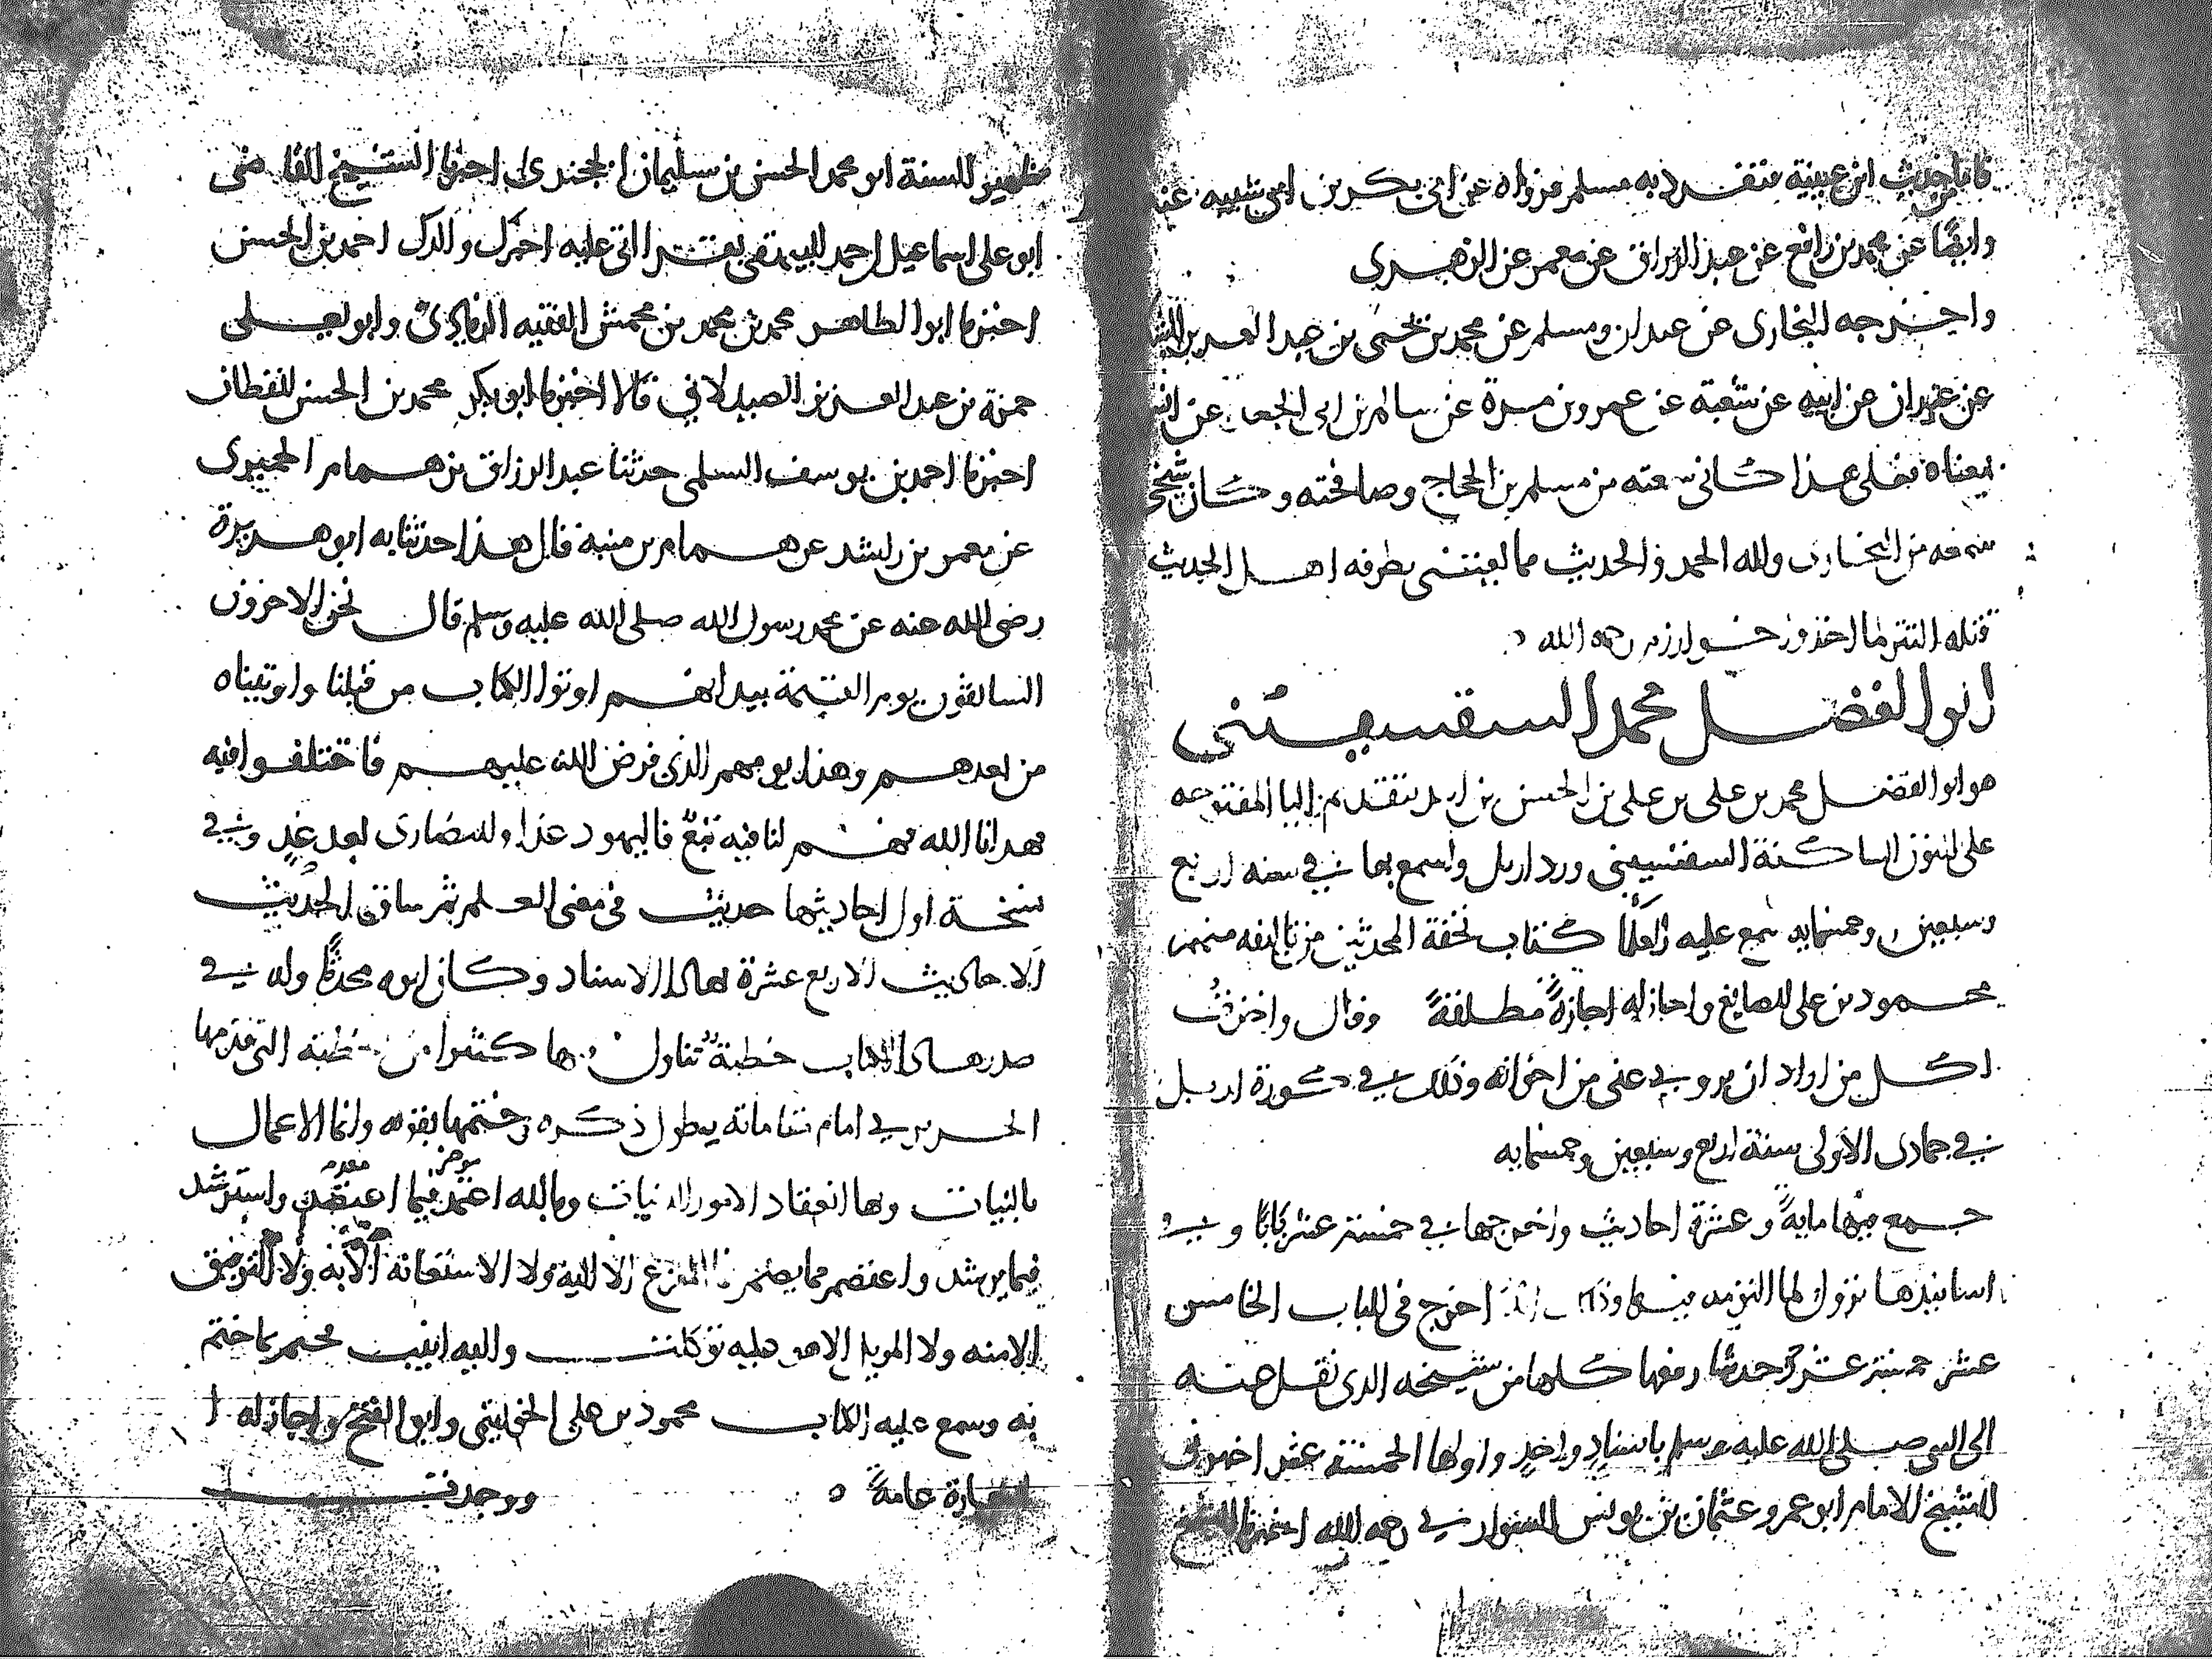 فاما حديث ابن عيينة فتفرد به مسلم فرواه عن ابى بكر بن ابي شيبه عنه
وايضًا عن محمد بن رافع عن عبد الرزاق عن معمر عن الزهرى
واخرجه البخارى عن عبدان ومسلم عن محمد بن يحيى بن عبد العزيز
عن عبدان عن ابيه عن شعبة عن عمرو بن مرة عن سالم بن ابى الجعد عن انس
معناه فعلى هذا كانى سمعته من مسلم بن الحجاج وصافحته وكان شيخى
سمعه من البخارى ولله الحمد والحديث مما يعتنى بطرفه اهل الحديث
قتله التتر لما اخذوا خوارزم رحمه الله
ابو الفضل محمد السقسينى
هو ابو الفضل محمد بن على بن على بن الحسن بن بتقديم البا المفتوحه
على النون الساكنة السقسينى ورد اربل واسمع بها فى سنه اربع
وسبعين وخمسمايه سمع عليه كتاب تحفة المحدثين من تاليفه منهم
محمود بن على الصايغ واجاز له اجازةً مطلقةً وقال واجزتُ
لكل من اراد ان يروى عنى من اخوانه وذلك فى كورة اربل
فى جمادى الاولى سنة اربع وسبعين وخمسمايه
جمع فيها مايةً وعشرة احاديث واخرجها فى خمسة عشر بابًا وفى
اسانيدها نزول اخرج فى الباب الخامس
عشر خمسة عشر حديثًا رفعها كلها من شيخه الذى نقل عنه
الى النبى صلى الله عليه وسلم باسنادٍ واحدٍ واول الخمسة عشر اخبرنى
الشيخ الامام ابو عمرو عثمان بن يونس رحمه الله اخبرنا الشيخ
ظهير السنة ابو محمد الحسن بن سليمان الخجندى اخبرنا الشيخ القاضى
ابو على اسماعيل بن احمد البيهقى بقراءتى عليه اخبرك والدك احمد بن الحسن
اخبرنا ابو الطاهر محمد بن محمد بن محمش الفقيه الزيادى وابو يعلى
حمزة بن عبد العزيز الصيدلانى قالا اخبرنا ابو بكر محمد بن الحسن القطان
اخبرنا احمد بن يوسف السلمى حدثنا عبد الرزاق بن همام الحميرى
عن معمر بن راشد عن همام بن منبه قال هذا حدثنا به ابو هريرة
رضى الله عنه عن محمد رسول الله صلى الله عليه وسلم قال نحن الاخرون
السابقون يوم القيمة بيد انهم اوتوا الكتاب من قبلنا واوتيناه
من بعدهم وهذا يومهم الذى فرض الله عليهم فاختلفوا فيه
فهدانا الله فهم لنا فيه تبعٌ فاليهود غدا والنصارى بعد غدٍ وفى
نسخة اول احاديثها حديث فى معنى العلم ثم ساق الحديث
الاحاديث الاربع عشرة بهذا الاسناد وكان ابوه محدثًا وله فى
صدر هذا الكتاب خطبة تناول فيها كثيرا من خطبته التى قدمها
الحريرى امام مقاماته يطول ذكره وختمها بقوله وانما الاعمال
بالنيات وبها انعقاد الامور وبالله اعتمد فيما اعتقد واسترشد
فيما يرشد واعتصم مما يصم المفزع الا اليه ولا الاستعانة الا به ولا التوفيق
الا منه ولا الا هو عليه توكلت واليه انيب ختم
به وسمع عليه الكتاب محمود بن على وابو الفتح واجاز له
اجازة عامةً ووجدت